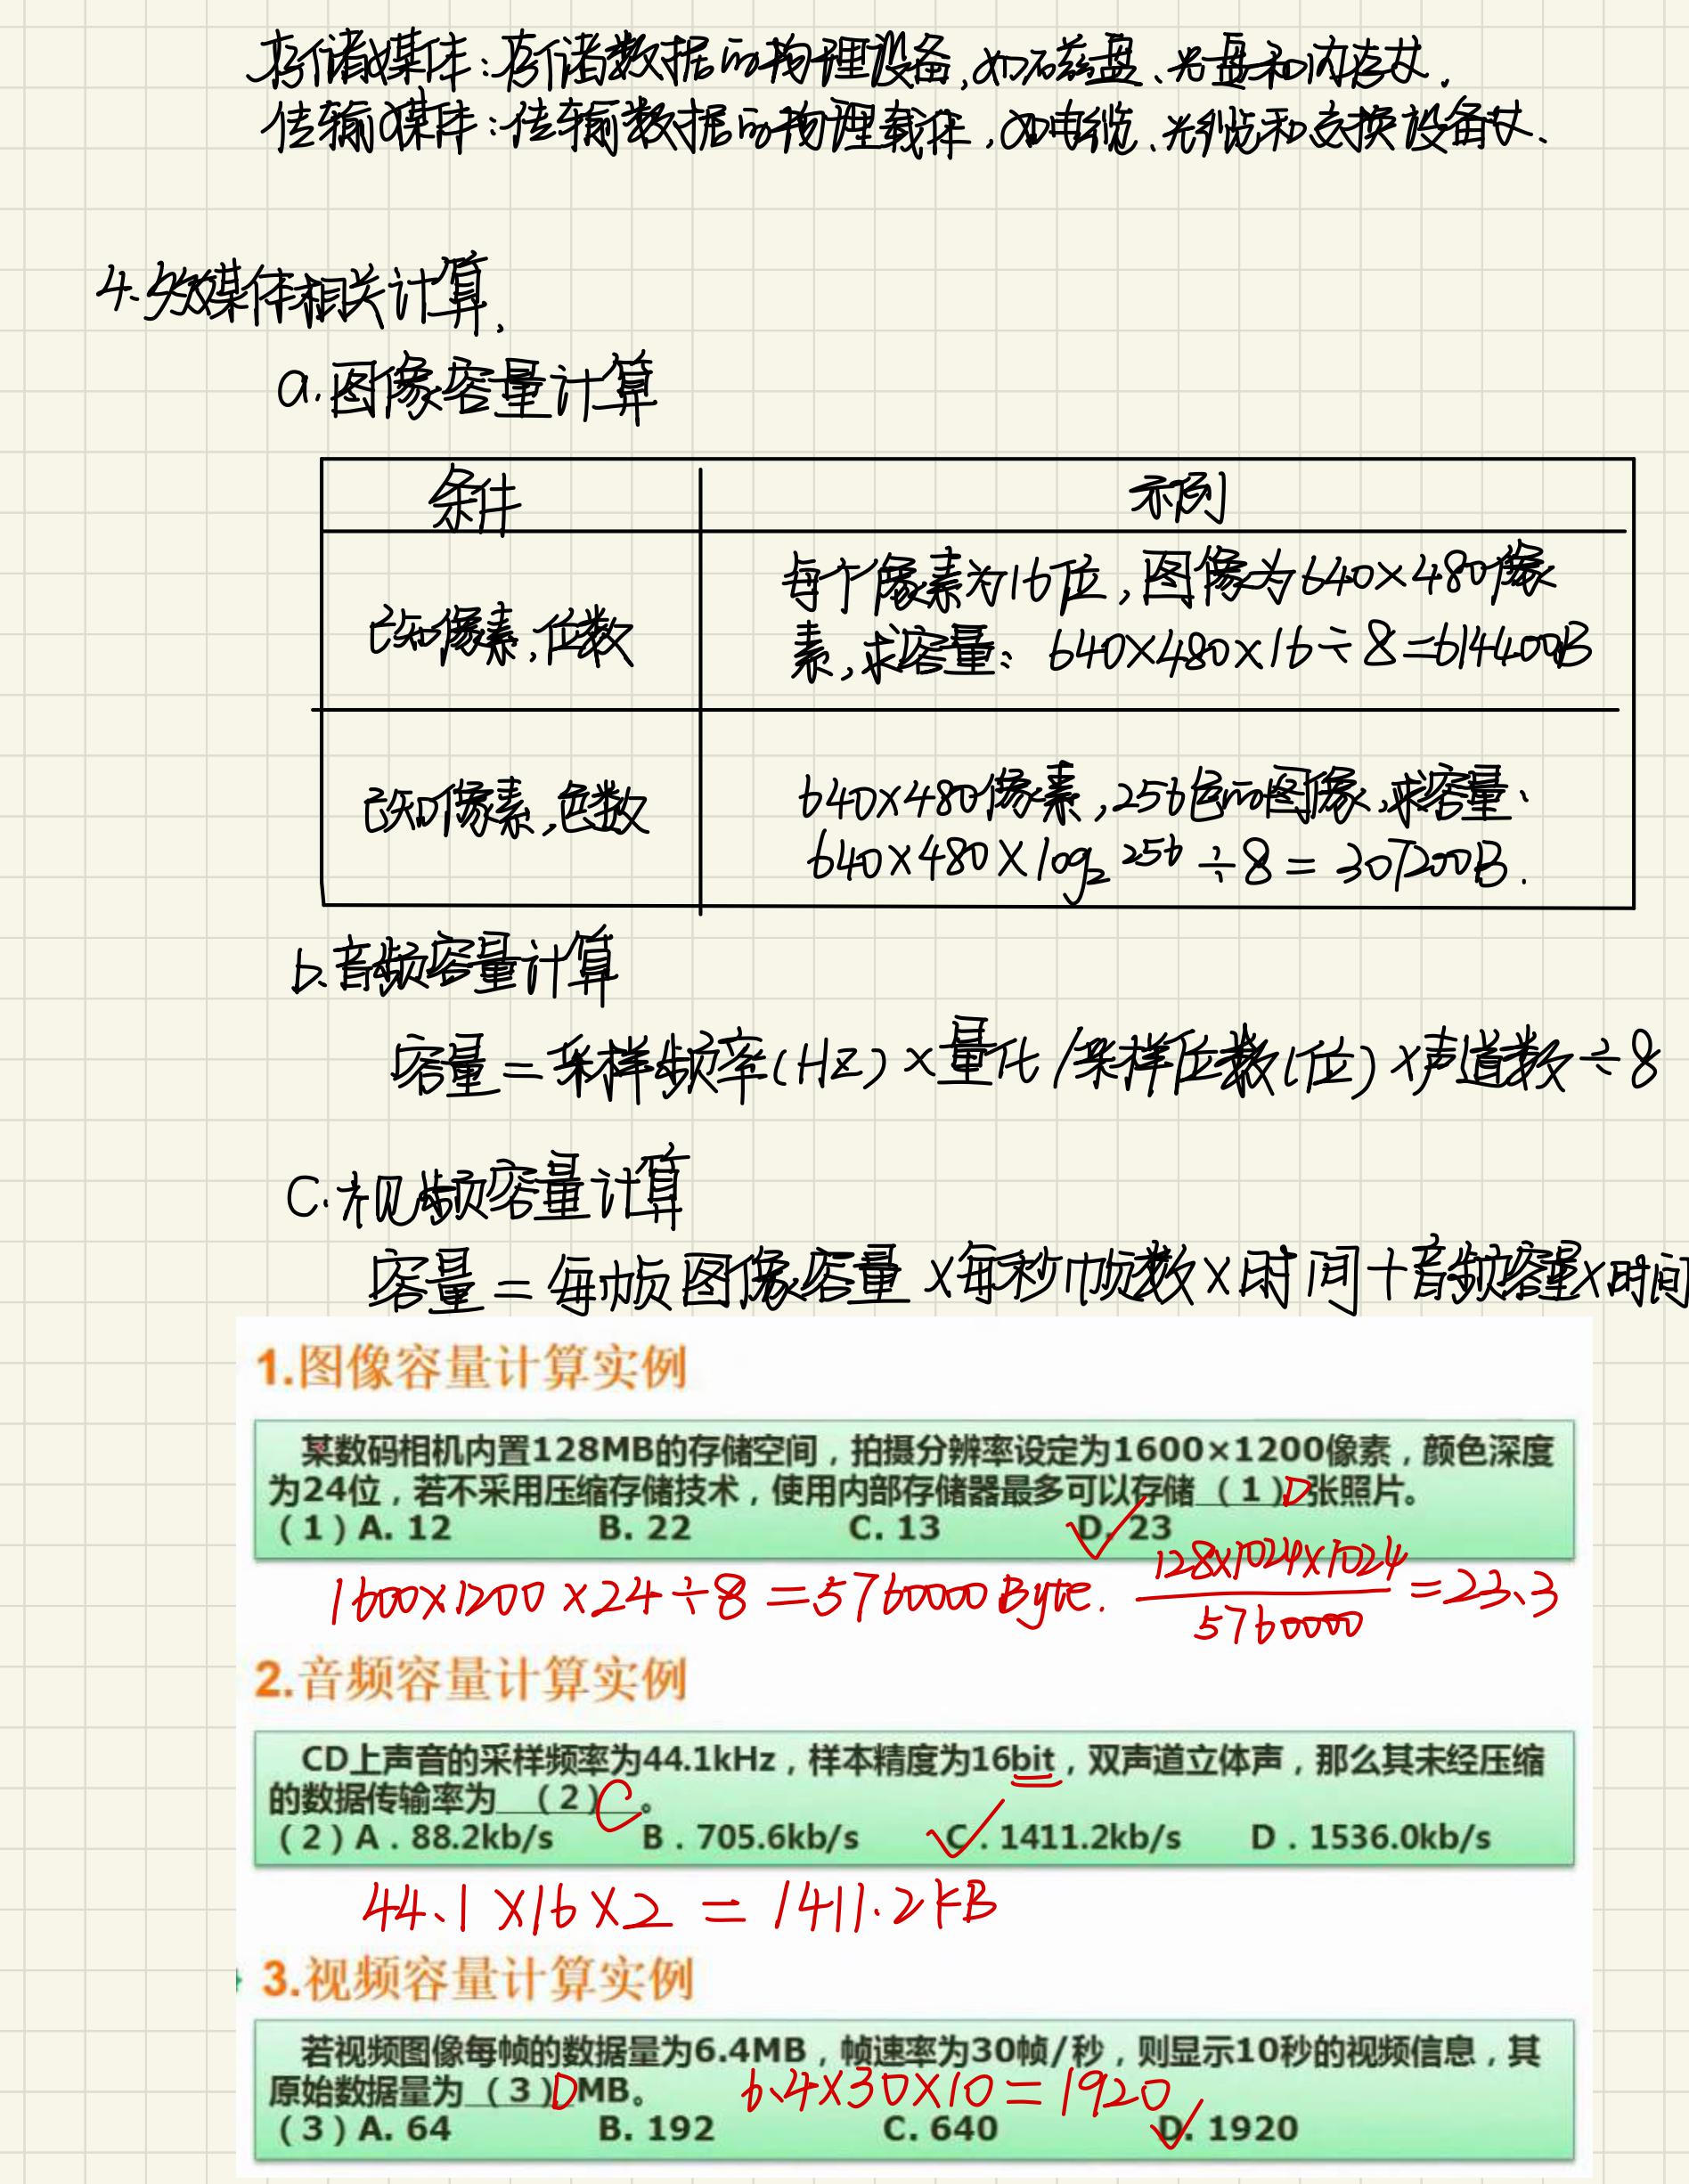 存储媒体:存储数据的物理设备,如磁盘、光盘和内存女.
传输媒体:传输数据的物理载体,如电缆、光缆和交换设备女.
4.多媒体相关计算.
a.图像容量计算
条件 示例
已知像素,位数 每个像素为16位,图像为640×480像
素,求容量: 640×480×16÷8=614400B
已知像素,色数 640×480像素,256色的图像,求容量、
640×480×log₂256÷8=307200B.
b.音频容量计算
容量=采样频率(HZ)×量化/采样位数(位)×声道数÷8
C.视频容量计算
容量=每帧图像容量×每秒帧数×时间+音频容量×时间
1.图像容量计算实例
某数码相机内置128MB的存储空间,拍摄分辨率设定为1600×1200像素,颜色深度
为24位,若不采用压缩存储技术,使用内部存储器最多可以存储 (1)D 张照片。
(1)A. 12 B. 22 C. 13 D. 23
1600×1200×24÷8=5760000Byte. 128×1024×1024
5760000 =23.3
2.音频容量计算实例
CD上声音的采样频率为44.1kHz,样本精度为16bit,双声道立体声,那么其未经压缩
的数据传输率为 (2)C 。
(2)A.88.2kb/s B.705.6kb/s C.1411.2kb/s D.1536.0kb/s
44.1×16×2=1411.2KB
3.视频容量计算实例
若视频图像每帧的数据量为6.4MB,帧速率为30帧/秒,则显示10秒的视频信息,其
原始数据量为 (3)D MB。 6.4×30×10=1920
(3)A. 64 B. 192 C. 640 D. 1920